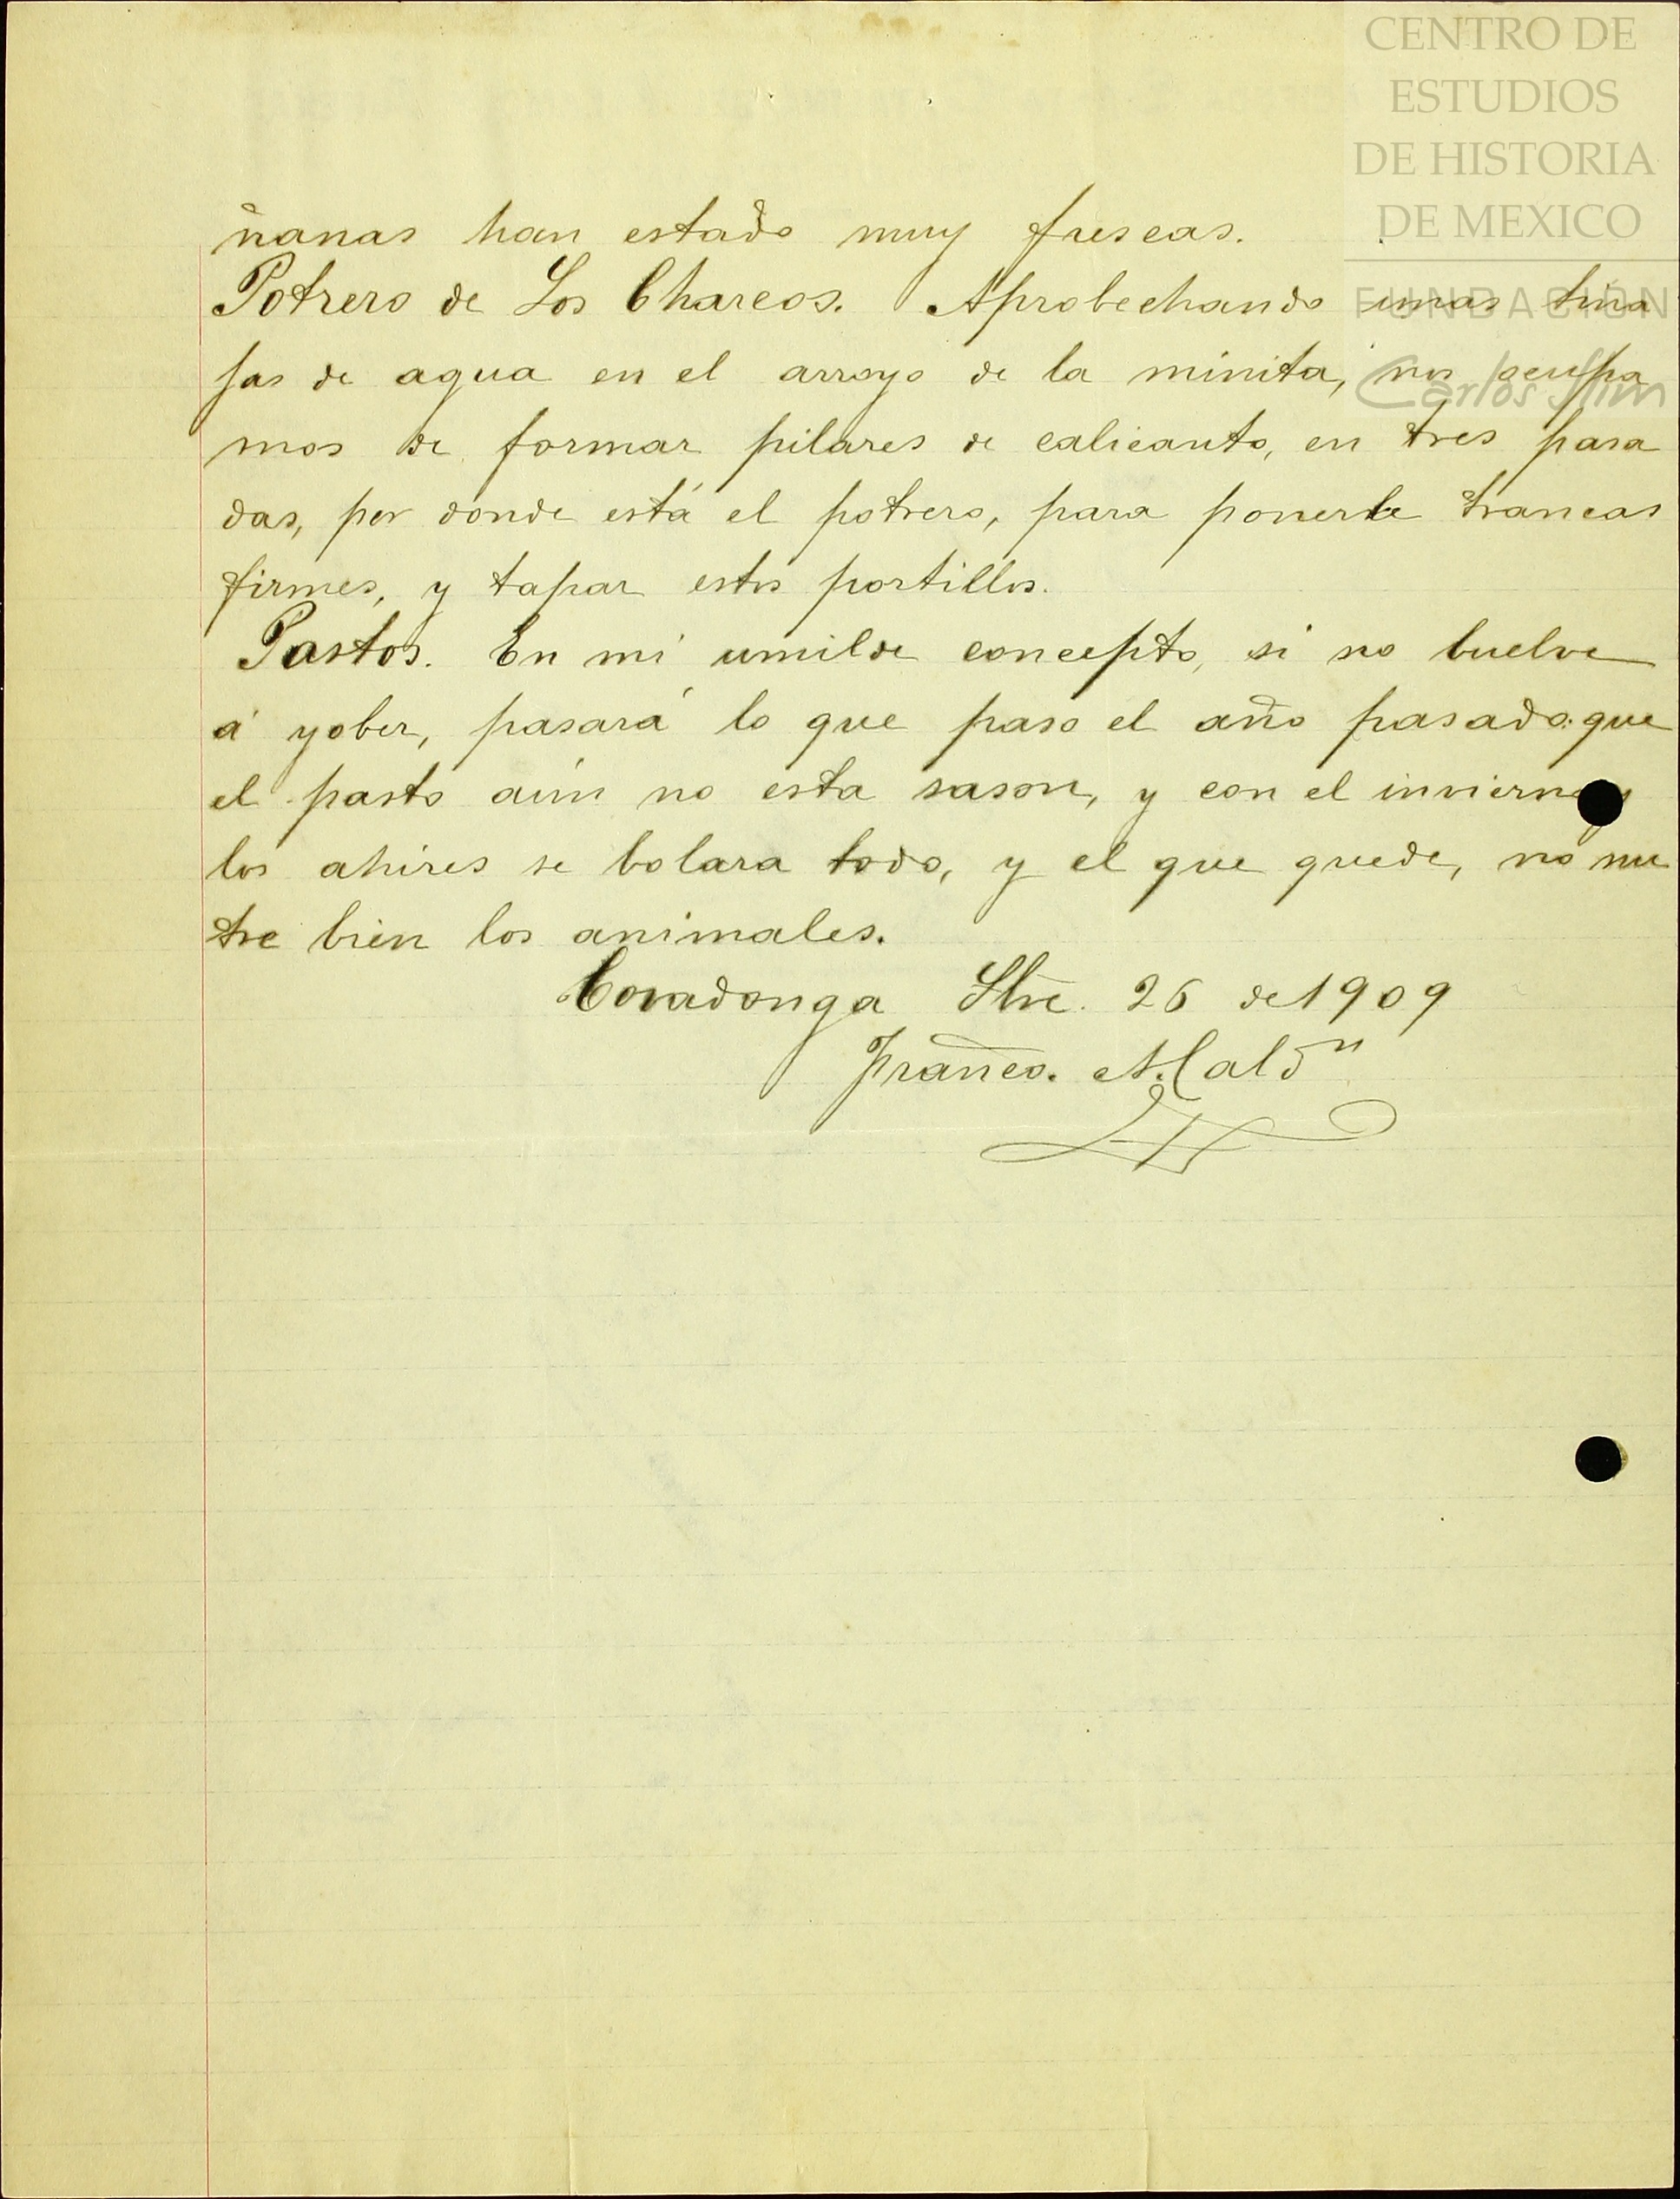 CENTRO DE
ESTUDIOS
DE HISTORIA
DE MEXICO
FUNDACIÓN
Carlos Slim
ñanas han estado muy frescas.
Potrero de Los Charcos. Aprobechando unas tina
jas de agua en el arroyo de la minita, nos ocupa
mos de formar pilares de calicanto, en tres pasa
das, por donde está el potrero, para ponerle trancas
firmes, y tapar estos portillos.
Pastos. En mi umilde concepto, si no buelve
á yober, pasará lo que paso el año pasado: que
el pasto aún no esta sason, y con el invierno y
los ahires se bolara todo, y el que quede, no nu
tre bien los animales.
Covadonga Sbre. 26 de 1909
Franco. Maldn